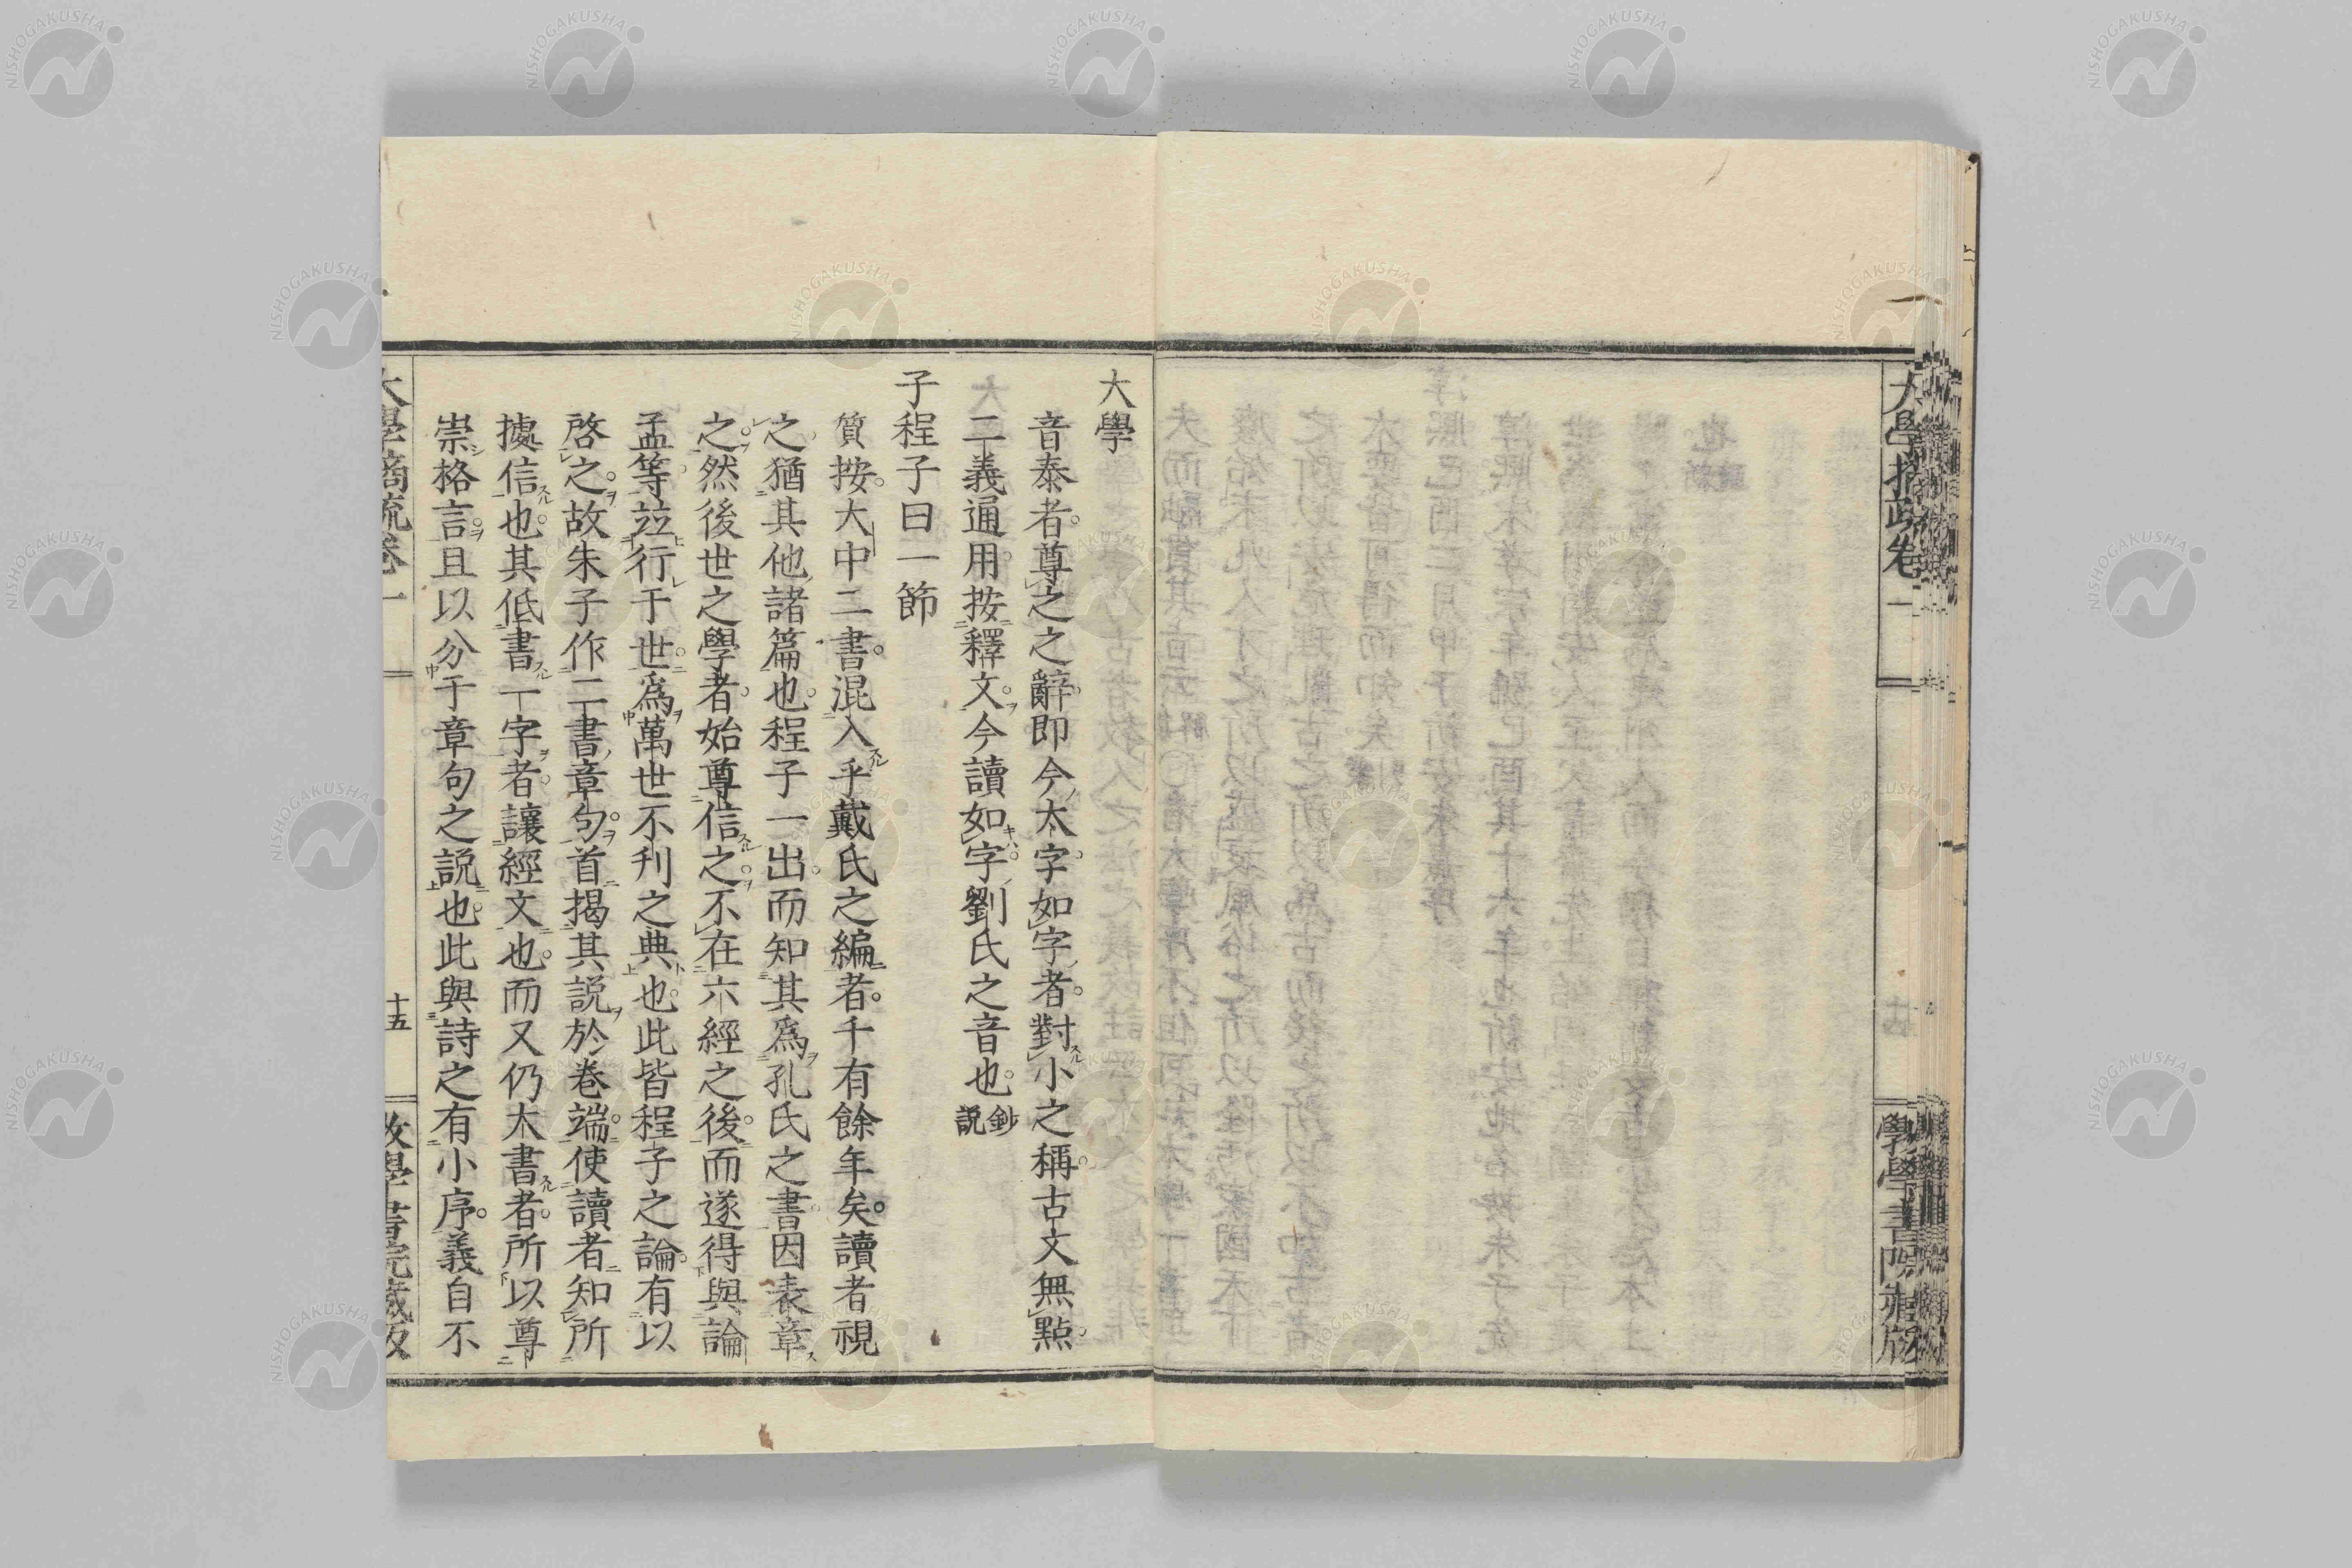 大學
音泰者尊之之辭即今太字如字者對小之稱古文無點
二義通用按釋文今讀如字劉氏之音也鈔說
子程子曰一節
質按大中二書混入乎戴氏之編者千有餘年矣讀者視
之猶其他諸篇也程子一出而知其爲孔氏之書因表章
之然後世之學者始尊信之不在六經之後而遂得與論
孟等竝行于世爲萬世不刋之典也此皆程子之論有以
啓之故朱子作二書章句首揭其說於卷端使讀者知所
據信也其低書一字者讓經文也而又仍大書者所以尊
崇格言且以分于章句之説也此與詩之有小序義自不
十五
NISHOGAKUSHA